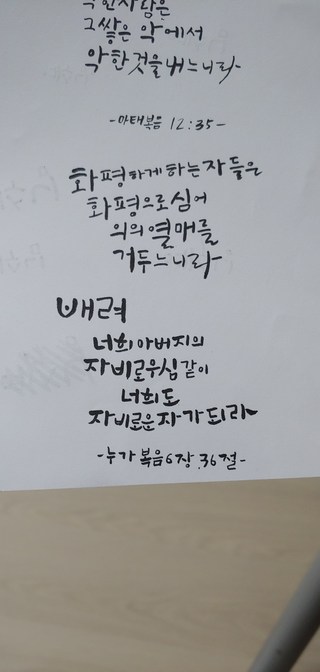 악한사람은
그쌓은 악에서
악한것을내느니라
-마태복음 12:35-
화평하게하는자들은
화평으로심어
의의열매를
거두느니라
배려
너희아버지의
자비로우심같이
너희도
자비로운자가되라
-누가복음6장.36절-